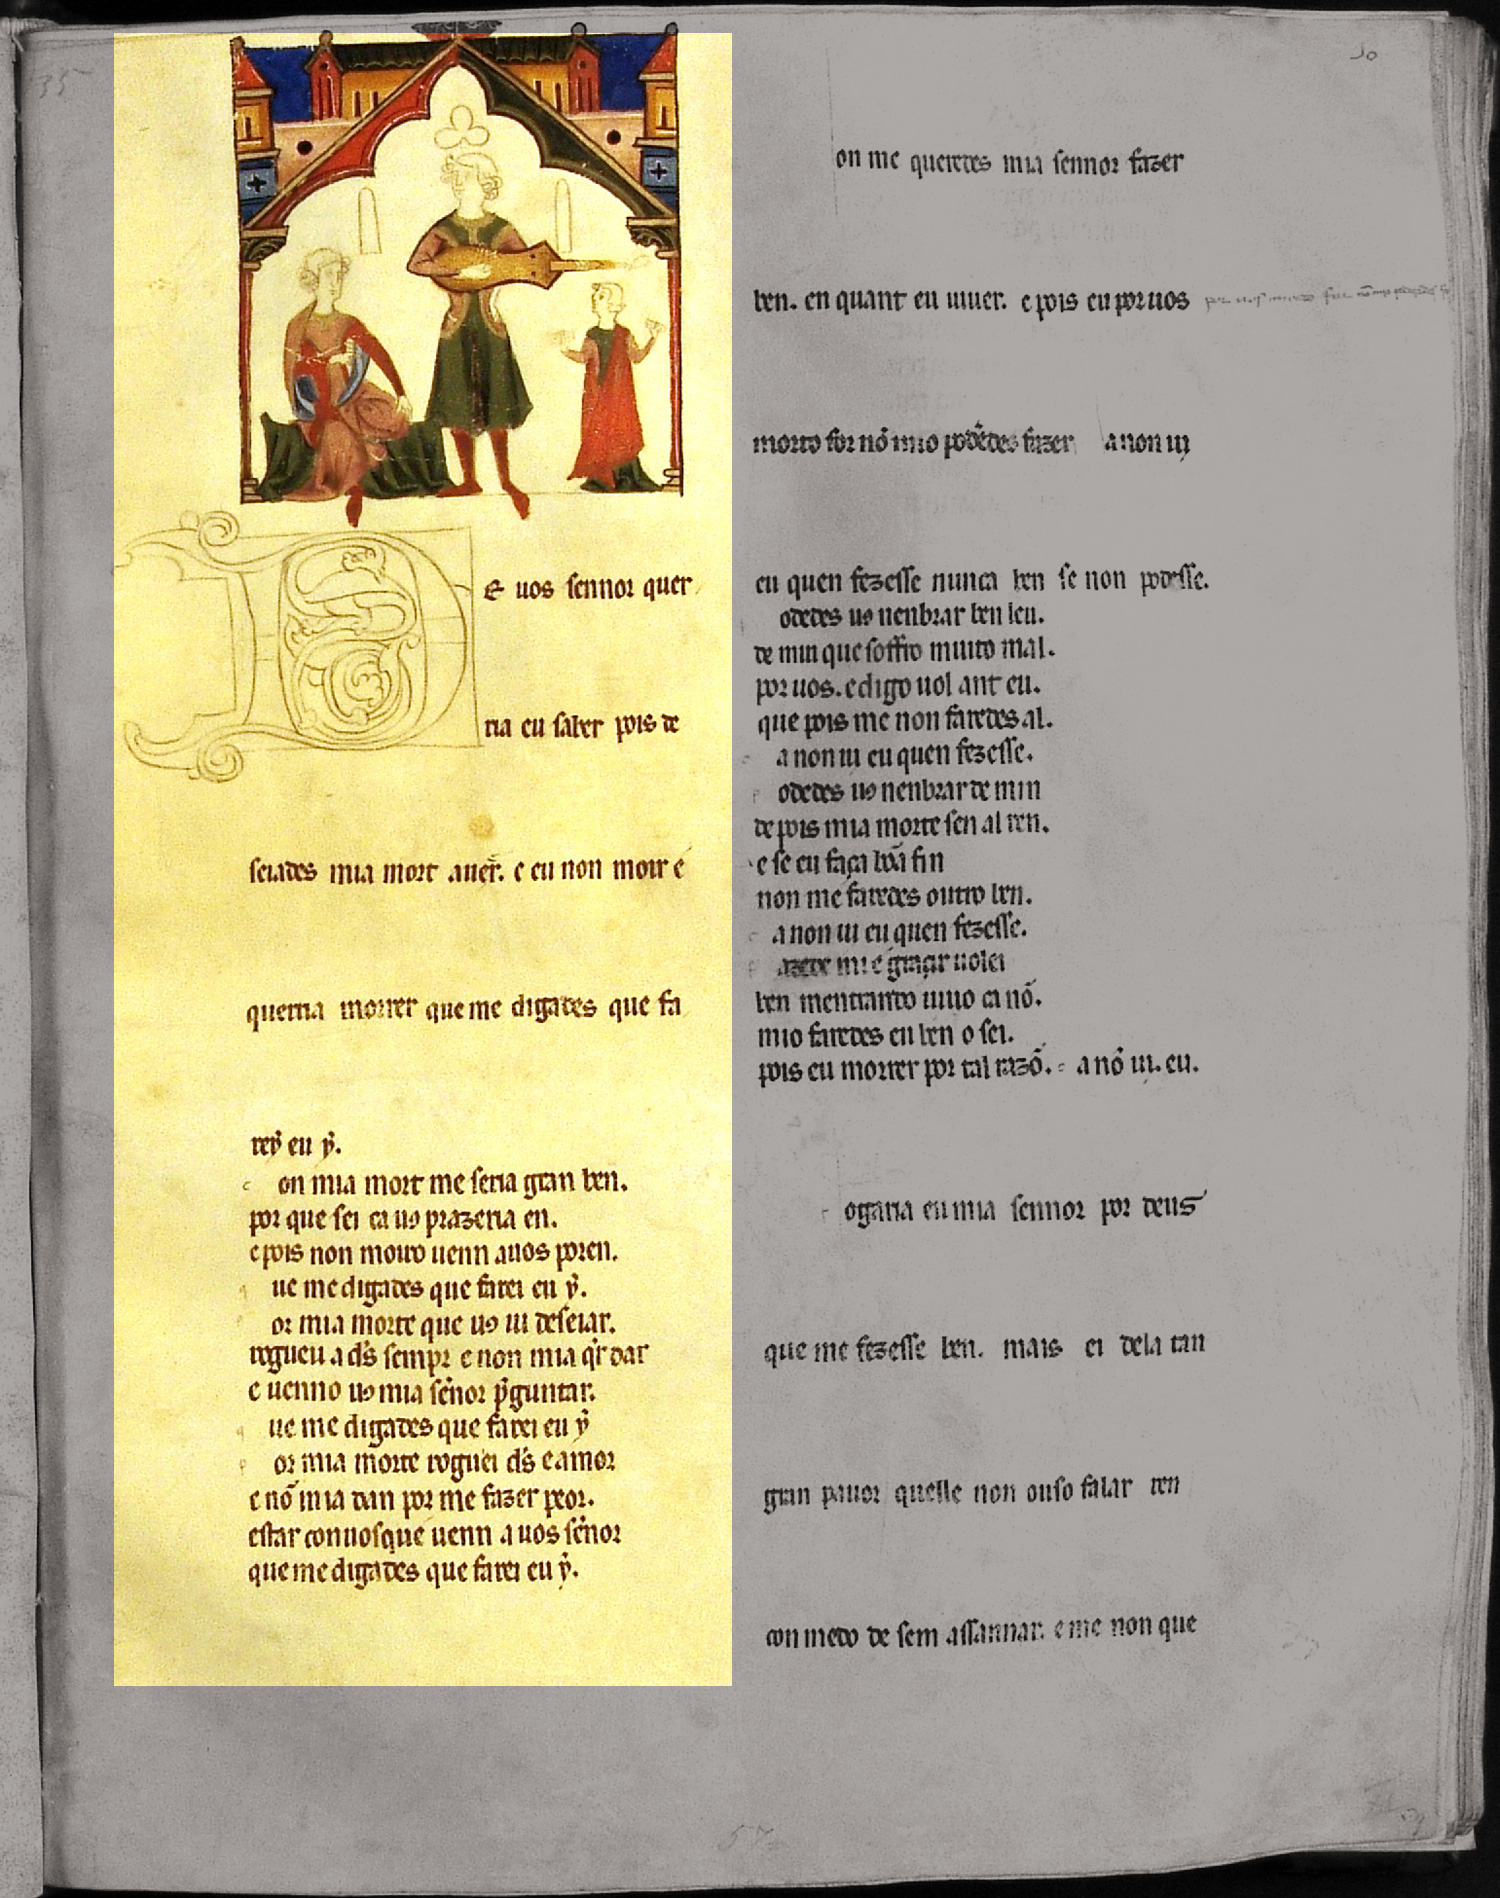 E uos sennor quer
ria eu saber pois de
seiades mia mort auer. e eu non moir e
querria morrer que me digades que fa
rey eu y.
on mia mort me seria gran ben.
por que sei ca uꝯ prazeria en.
e pois non moiro uenn auos poren.
ue me digades que farei eu ẏ.
or mia morte que uꝯ ui deseiar.
rogueu a ds̃ sempr e non mia q̇r dar
e uenno uꝯ mia sẽnor p̃guntar.
ue me digades que farei eu ẏ
or mia morte roguei ds̃ e amor
e nõ mia dan por me fazer peor.
estar conuosque uenn a uos sẽnor
que me digades que farei eu ẏ.
on me queredes mia sennor fazer
ben. en quant eu uiuer. e pois eu por uos
morto for nõ mio podedes fazer a non ui
eu quen fezesse nunca ben se non podesse.
odedes uꝯ nenbrar ben leu.
de min que soffro muito mal.
por uos. e digo uol ant eu.
que pois me non faredes al.
a non ui eu quen fezesse.
odedes uꝯ nenbrar de min
de pois mia morte sen al ren.
e se eu faça bõa fin
non me faredes outro ben.
a non ui eu quen fezesse.
azede mi e graçir uolei
ben mentrando uiuo ca nõ.
mio faredes eu ben o sei.
pois eu morrer por tal razõ. a nõ ui. eu.
ogaria eu mia sennor por deus
que me fezesse ben. mais ei dela tan
gran pauor quelle non ouso falar ren
con medo de sem assannar. e me non que